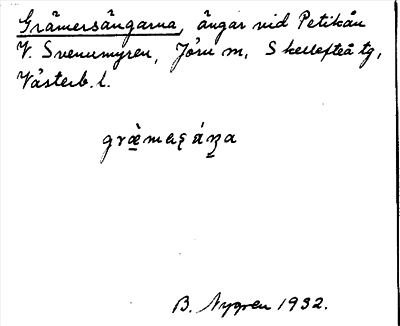 Grämersängarna, ängar vid Petikån
V. Svenumyren, Jörn m, Skellefteå tg,
Västerb. l.
B. Nygren 1932.